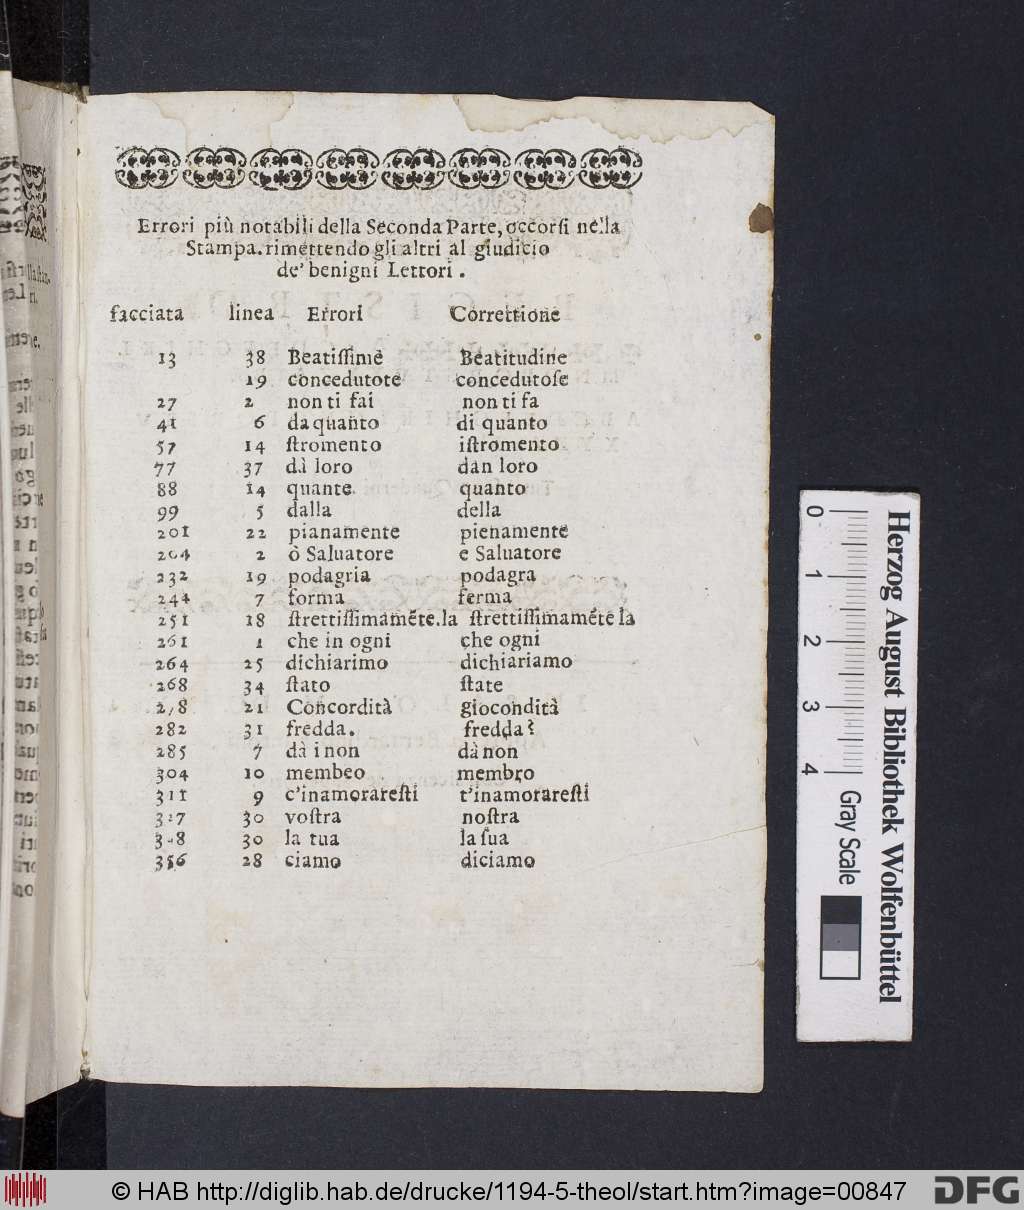 Errori più notabili della Seconda Parte, occorsi nella
Stampa. rimettendo gli altri al giudicio
de' benigni Lettori.
facciata linea Errori Correttione
13 38 Beatissime Beatitudine
19 concedutote concedutose
27 2 non ti fai non ti fa
41 6 da quanto di quanto
57 14 stromento istromento
77 37 dà loro dan loro
88 14 quante quanto
99 5 dalla della
201 22 pianamente pienamente
204 2 ò Saluatore e Saluatore
232 19 podagria podagra
244 7 forma ferma
251 18 strettissimamẽte.la strettissimamẽte la
261 1 che in ogni che ogni
264 25 dichiarimo dichiariamo
268 34 stato state
21 Concordità giocondità
282 31 fredda. fredda?
285 7 dà i non dà non
304 10 membeo membro
311 9 c'inamoraresti t'inamoraresti
30 vostra nostra
30 la tua la sua
356 28 ciamo diciamo
0 1 2 3 4
Gray Scale
Herzog August Bibliothek Wolfenbüttel
© HAB http://diglib.hab.de/drucke/1194-5-theol/start.htm?image=00847
DFG